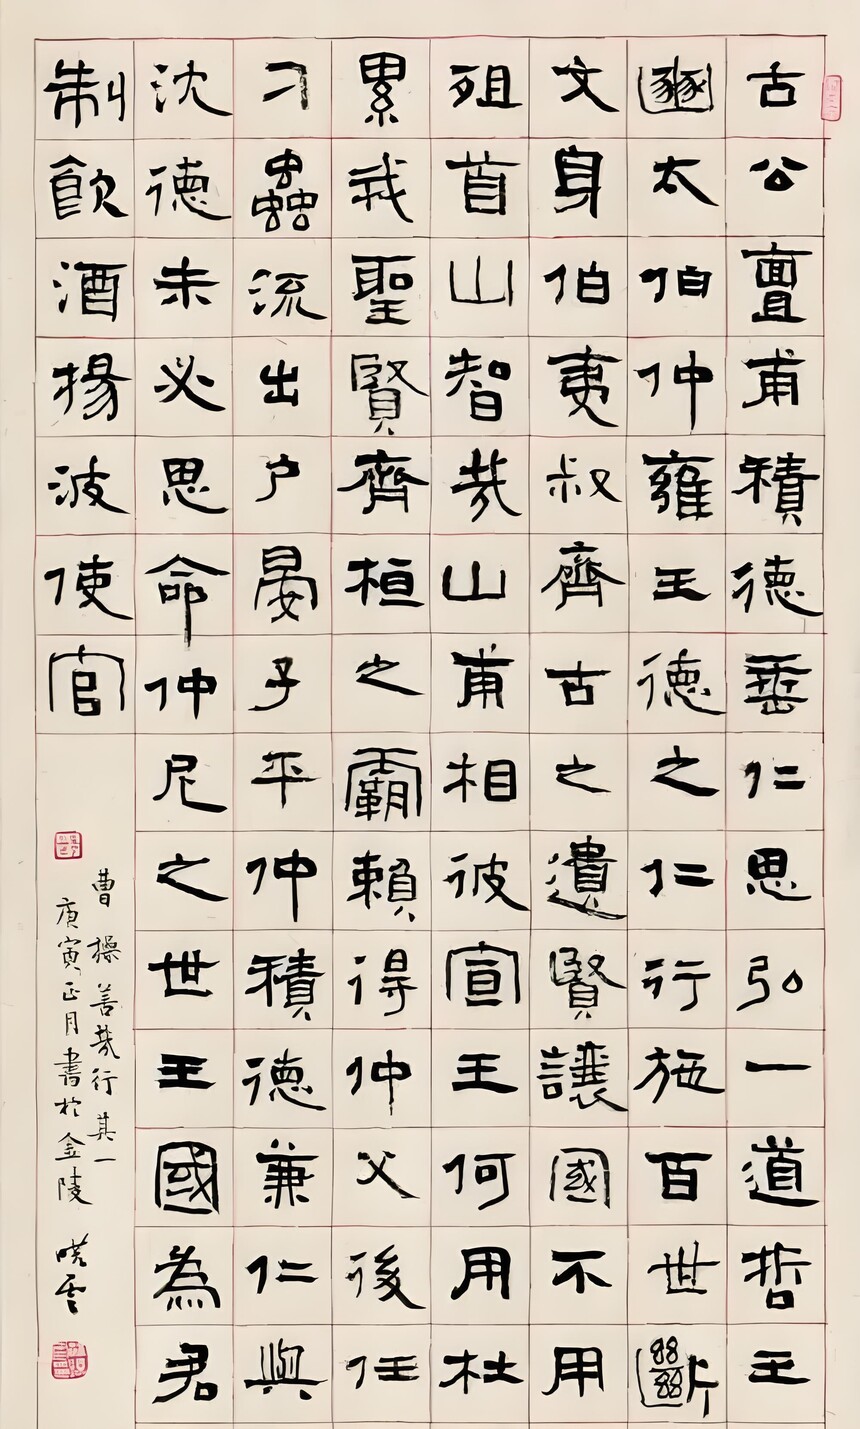 古公亶甫積德垂仁思弘一道哲王
豳太伯仲雍王德之仁行施百世斷
文身伯夷叔齊古之遺賢讓國不用
殂首山智哉山甫相彼宣王何用杜
累我聖賢齊桓之霸賴得仲父後任
刁蟲流出戶晏子平仲積德兼仁與
沈德未必思命仲尼之世王國為君
制飲酒揚波使官
曹操善哉行其一
庚寅正月書於金陵 曉雲